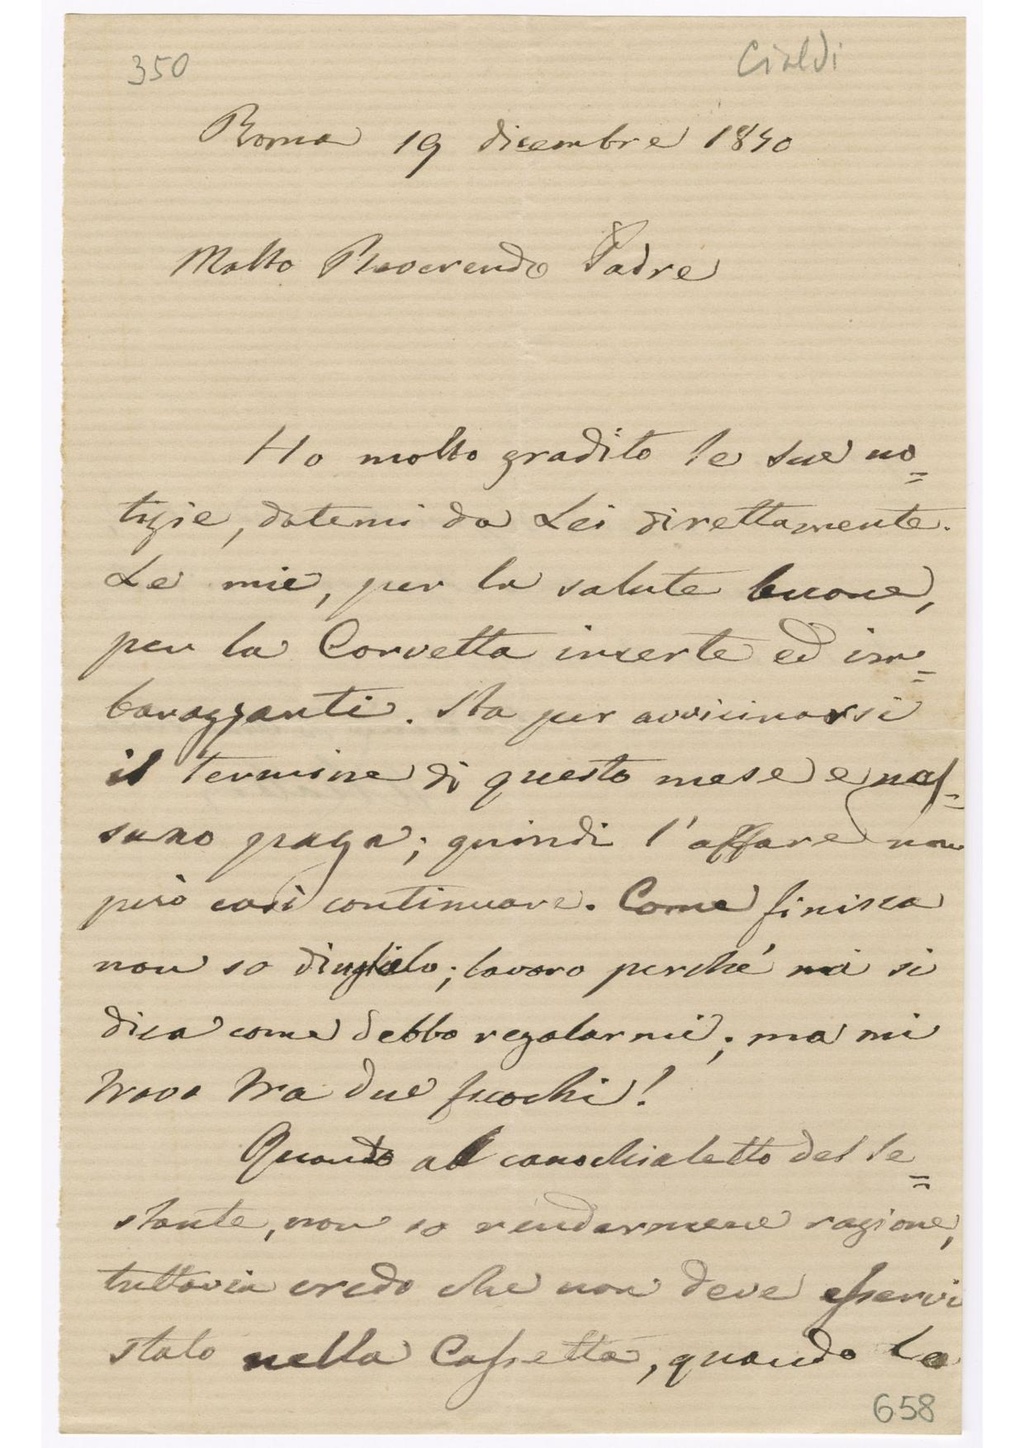 350
Cialdi
Roma 19 dicembre 1870
Molto Reverendo Padre
Ho molto gradito le sue no=
tizie, datemi da Lei direttamente.
Le mie, per la salute buone,
per la Corvetta incerte ed im=
barazzanti. Sta per avvicinarsi
il termine di questo mese e nes=
suno paga; quindi l'affare non
può così continuare. Come finisca
non so dirglielo; lavoro perché mi si
dica come debbo regolarmi; ma mi
trovo tra due fuochi!
Quando al canochialetto del se=
stante, non so rendermene ragione,
tuttavia credo che non deve esservi
stato nella Cassetta, quando La
658